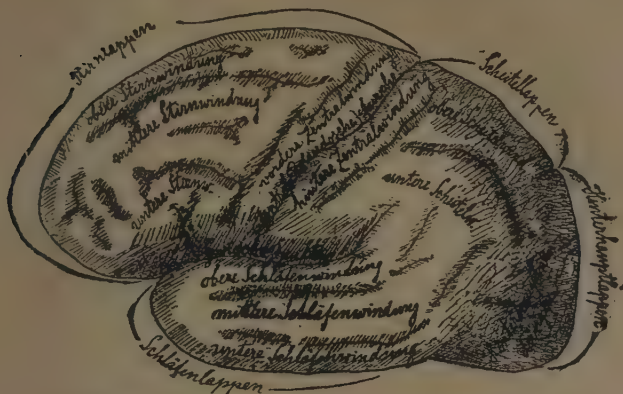 Stirnlappen
obere Stirnwindung
mittere Stirnwindung
untere Stirnw
vordere Zentralwindung
hintere Zentralwindung
Scheitellappen
obere
untere Scheitel
Hinterhauptlappen
obere Schläfenwindung
mittere Schläfenwindung
untere Schläfenwindung
Schläfenlappen